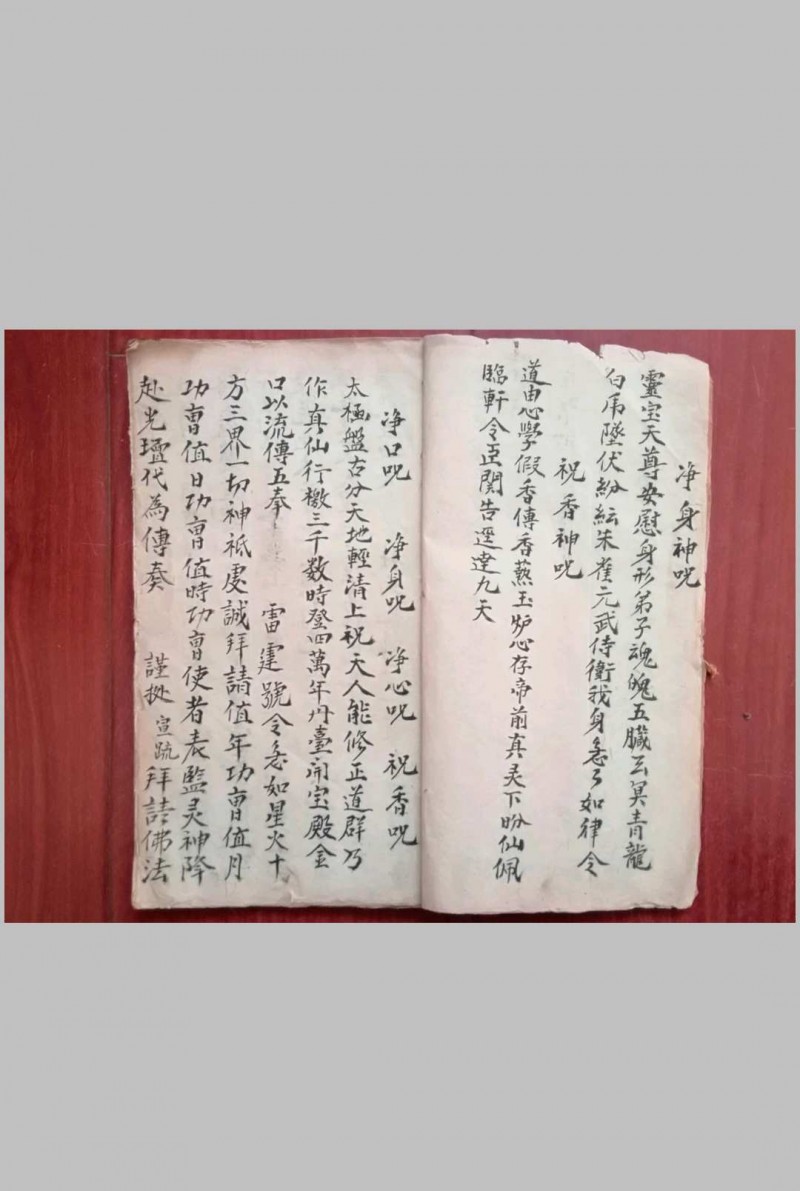 净身神呪
靈宝天尊安慰身形弟子魂魄五臟玄冥青龍
白虎墜伏紛紜朱雀元武侍衛我身急々如律令
祝香神呪
道由心學假香傳香爇玉炉心存帝前真灵下盼仙佩
臨軒令臣関告逕達九天
净口呪 净身呪 净心呪 祝香呪
太極盤古分天地輕清上祝天人能修正道群乃
作真仙行檄三千数時登四萬年丹臺开宝殿金
口以流傳五奉 雷霆號令急如星火十
方三界一切神祇虔誠拜請值年功曹值月
功曹值日功曹值時功曹使者表監灵神降
赴光壇代為傳奏 謹 宣疏 拜請佛法